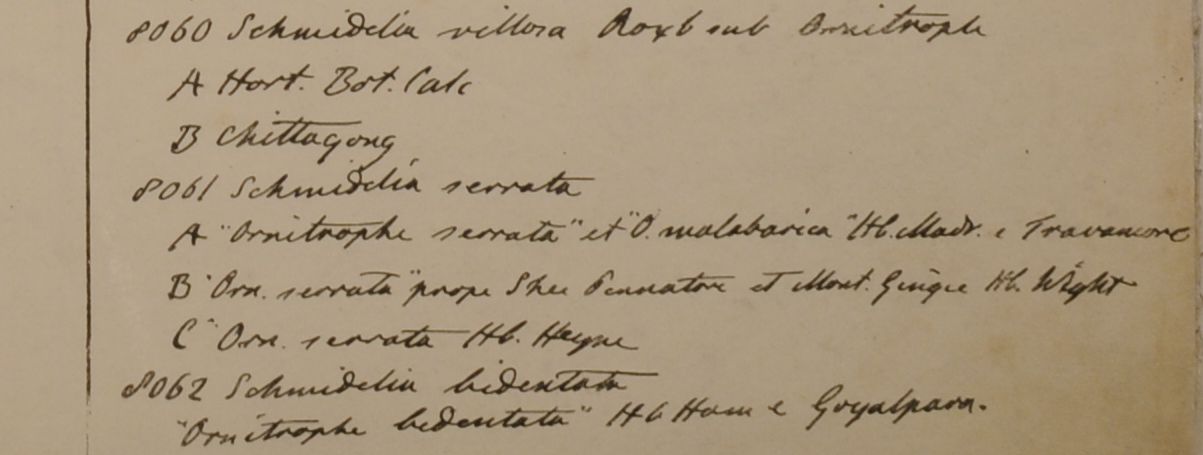 8060 Schmidelia villosa Roxb sub Ornitroph
A Hort. Bot. Calc
B Chittagong
8061 Schmidelia serrata
A "Ornitrophe serrata" et "O. malabarica" Hb. Madr. e Travancore
B "Orn. serrata" prope Shee Pennatore et Mont. Gingee Hb. Wight
C "Orn. serrata Hb. Heyne
8062 Schmidelia bidentata
"Ornitrophe bedentata" Hb Ham e Goyalpara.